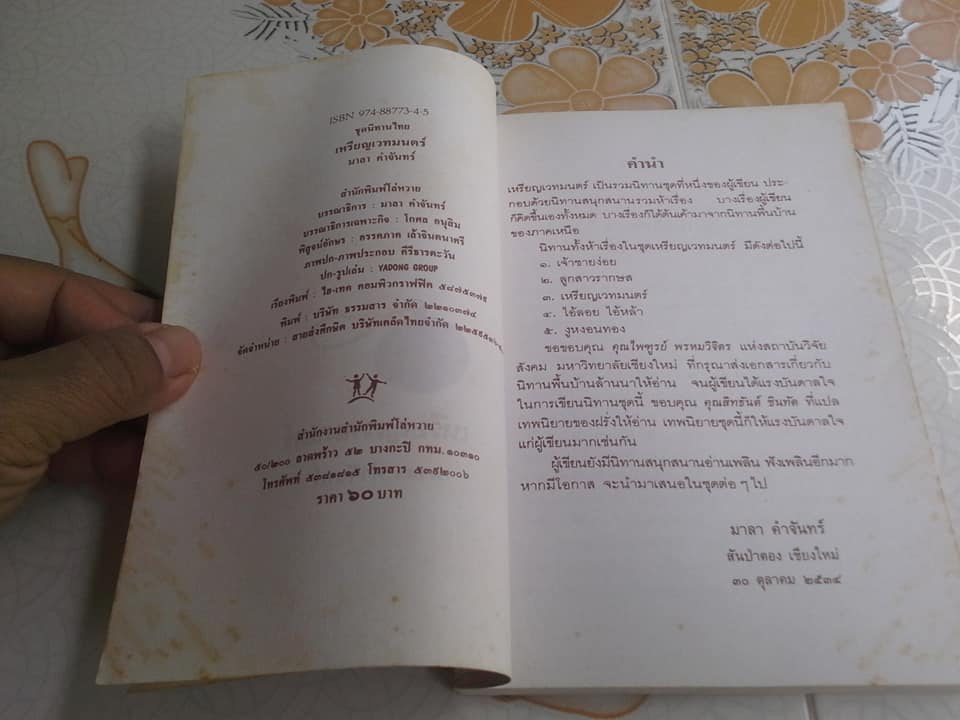 ISBN 974-88773-4-5
ชุดนิทานไทย
เหรียญเวทมนตร์
มาลา คำจันทร์
สำนักพิมพ์ไล่หวาย
บรรณาธิการ : มาลา คำจันทร์
บรรณาธิการเฉพาะกิจ : โกศล อนุสิม
พิสูจน์อักษร : อรรคภาค เล้าจินตนาศรี
ภาพปก-ภาพประกอบ คีรีธารตะวัน
ปก-รูปเล่ม : YADONG GROUP
เรียงพิมพ์ : ไฮ-เทค คอมพิวกราฟฟิค ๕๘๗๕๓๗๕
พิมพ์ : บริษัท ธรรมสาร จำกัด ๒๒๑๐๓๗๔
จัดจำหน่าย : สายส่งศึกษิต บริษัทเคล็ดไทยจำกัด
สำนักงานสำนักพิมพ์ไล่หวาย
๕๐/๒๐๐ ลาดพร้าว ๕๒ บางกะปิ กทม.๑๐๓๑๐
โทรศัพท์ ๕๓๘๑๘๑๕ โทรสาร ๕๓๙๒๐๐๖
ราคา ๖๐ บาท
คำนำ
เหรียญเวทมนตร์ เป็นรวมนิทานชุดที่หนึ่งของผู้เขียน ประ-
กอบด้วยนิทานสนุกสนานรวมห้าเรื่อง บางเรื่องผู้เขียน
ก็คิดขึ้นเองทั้งหมด บางเรื่องก็ได้ต้นเค้ามาจากนิทานพื้นบ้าน
ของภาคเหนือ
นิทานทั้งห้าเรื่องในชุดเหรียญเวทมนตร์ มีดังต่อไปนี้
๑. เจ้าชายง่อย
๒. ลูกสาวรากษส
๓. เหรียญเวทมนตร์
๔. ไอ้ลอย ไอ้หล้า
๕. งูหงอนทอง
ขอขอบคุณ คุณไพฑูรย์ พรหมวิจิตร แห่งสถาบันวิจัย
สังคม มหาวิทยาลัยเชียงใหม่ ที่กรุณาส่งเอกสารเกี่ยวกับ
นิทานพื้นบ้านล้านนาให้อ่าน จนผู้เขียนได้แรงบันดาลใจ
ในการเขียนนิทานชุดนี้ ขอบคุณ คุณสิทธันต์ ชินทัต ที่แปล
เทพนิยายของฝรั่งให้อ่าน เทพนิยายชุดนี้ก็ให้แรงบันดาลใจ
แก่ผู้เขียนมากเช่นกัน
ผู้เขียนยังมีนิทานสนุกสนานอ่านเพลิน ฟังเพลินอีกมาก
หากมีโอกาส จะนำมาเสนอในชุดต่อ ๆ ไป
มาลา คำจันทร์
สันป่าตอง เชียงใหม่
๓๐ ตุลาคม ๒๕๓๔